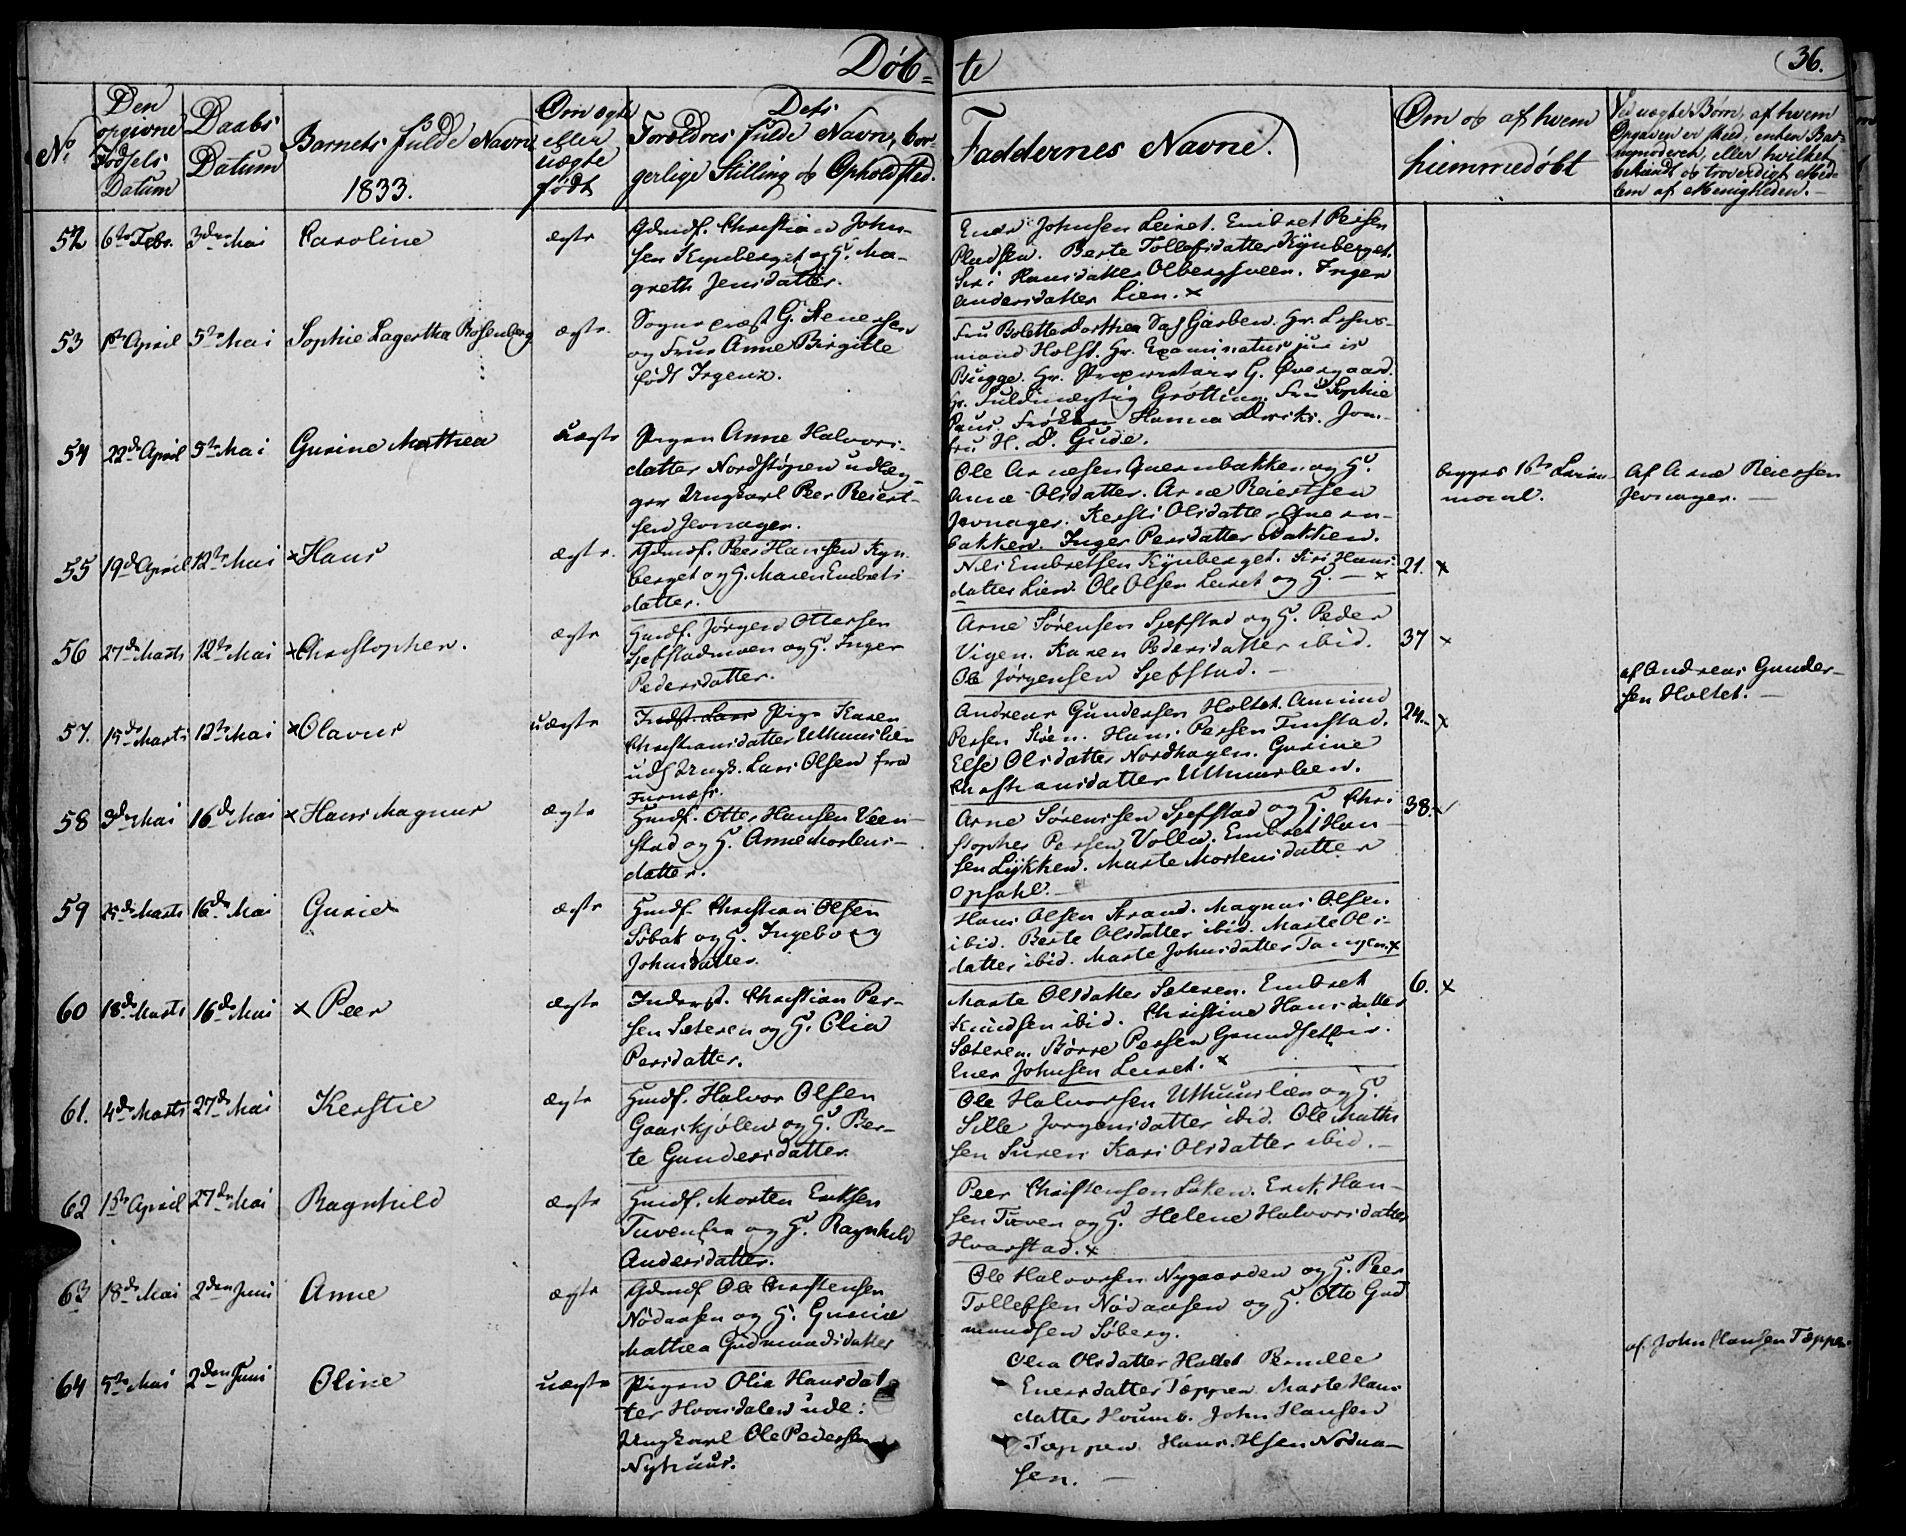 Døb-te
36.
No
Den opgivne Fødsels Datum
Daabs Datum
Barnets fulde Navn 1833.
Om ægte eller uægte født
Dets Forældres fulde Navn, bor-
gerlige Stilling og Opholdsted.
Faddernes Navne.
Om og af hvem
hiemmedøbt
Ved uægte Børn, af hvem
Opgaven er skeed, enten Bar-
nemoderen, eller hvilket
bekiendt og troværdigt Med-
lem af Menigheden.
52 6te Febr. 3den Mai Caroline ægte
Gdmdf. Christian John-
sen Kynberget og H. Ma-
grethe Jensdatter.
Ener Johnsen Leiret. Embret Persen
Pladsen. Berte Tollefsdatter Kynberget.
Siri Hansdatter Olbergsveen. Inger
Andersdatter Lien. x
53 1ste April 5te Mai Sophie Lagertha Rosenberg ægte.
Sognepræst G. Stenersen
og Frue Anne Birgitte
født Irgens.
Fru Bolette Dorthea Garben. Hr. Lehns-
mand Holst. Hr. Examinatus juris
Bugge. Hr. Proprietair G. Øvergaard.
Hr. Fuldmægtig Grøtting. Fru Sophie
Paus. Frøken Hanna Dircks. Jom-
fru H. D. Gude.
54 22de April 5te Mai Gurine Mathea uægte
Pigen Anne Halvors-
datter Nordstøpen udlæg-
ger Ungkarl Peer Reiert-
sen Jevnager.
Ole Arnesen Quernbakken og H.
Anne Olsdatter. Arne Reiertsen
Jevnager. Kersti Olsdatter Quern-
bakken. Inger Persdatter Bakken.
begges 1ste Leier-
maal.
Af Arne Reiersen
Jevnager. —
55 19de April 12te Mai x Hans ægte.
Gdmdf. Peer Hansen Kyn-
berget og H. Maren Embrets-
datter.
Nils Embretsen Kynberget. Siri Hans-
datter Lien. Ole Olsen Leiret og H. — x
21. x
56 27de Marts 12te Mai x Christopher. ægte
Hmdf. Jørgen Ottersen
Sjefstadmoen og H. Inger
Pedersdatter.
Arne Sørensen Sjefstad og H. Peder
Vigen. Karen Pedersdatter ibid.
Ole Jørgensen Sjefstad. —
37 x
57. 15de Marts 12te Mai x Olavus uægte
Pige Karen
Christiansdatter Uthuuslien
udl. Ungk. Lars Olsen fra
Furnæs.
Andreas Gundersen Holtet. Amund
Persen Koen. Hans Persen Finstad.
Else Olsdatter Nordhagen. Gurine
Christiansdatter Uthuuslien.
24. x
af Andreas Gunder-
sen Holtet. —
58 3de Mai 16de Mai x Hans Magnus ægte
Hmdf. Otter Hansen Veen-
stad og H. Anne Mortens-
datter.
Arne Sørenssen Sjefstad og H. Chri-
stopher Persen Volden. Embret Han-
sen Løkken. Marte Mortensdatter
Opsahl. —
38. x
59 25de Marts 16de Mai Gurie ægte
Hmdf. Christian Olsen
Søbak og H. Ingeborg
Johnsdatter.
Hans Olsen Strand. Magnus Olsen
ibid. Berte Olsdatter ibid. Marte Ols-
datter ibid. Marte Johnsdatter Tangen. x
60 18de Marts 16de Mai x Peer ægte
Inderst. Christian Per-
sen Sæteren og H. Olia
Persdatter.
Marte Olsdatter Sæteren. Embret
Knudsen ibid. Christine Hansdatter
Sæteren. Børre Persen Grundsetbir.
Ener Johnsen Leiret. x
6. x
61. 4de Marts 27de Mai Kerstie ægte
Hmdf. Halvor Olsen
Gaaskjølen og H. Ber-
te Gundersdatter.
Ole Halvorsen Uthuuslien og H.
Sille Jørgensdatter ibid. Ole Math-
sen Suren Kari Olsdatter ibid. —
62 15te April 27de Mai Ragnhild ægte
Hmdf. Morten Eriksen
Tuvenlie og H. Ragnhild
Andersdatter.
Peer Christensen Løken. Erik Han-
sen Tuven og H. Helene Halvorsdatter
Hvarstad. x
63 18de Mai 2den Juni Anne ægte
Gdmdf. Ole Christensen
Nødaasen og H. Gurine
Mathea Gudmundsdatter
Ole Halvorsen Nygaarden og H. Peer
Tollefsen Nødaasen og H. Otto Gud-
mundsen Søberg.
64 5te Mai 2den Juni Oline uægte
Pigen Olia Hansdat-
ter Hvorsdalen udl:
Ungkarl Ole Pedersen
Nyhuus.
Olia Olsdatter Holtet Pernille
Enersdatter Tæppen. Marte Hans-
datter Houmb. John Hansen
Tæppen. Hans Olsen Nødaa-
sen. —
af John Hansen Tæppen